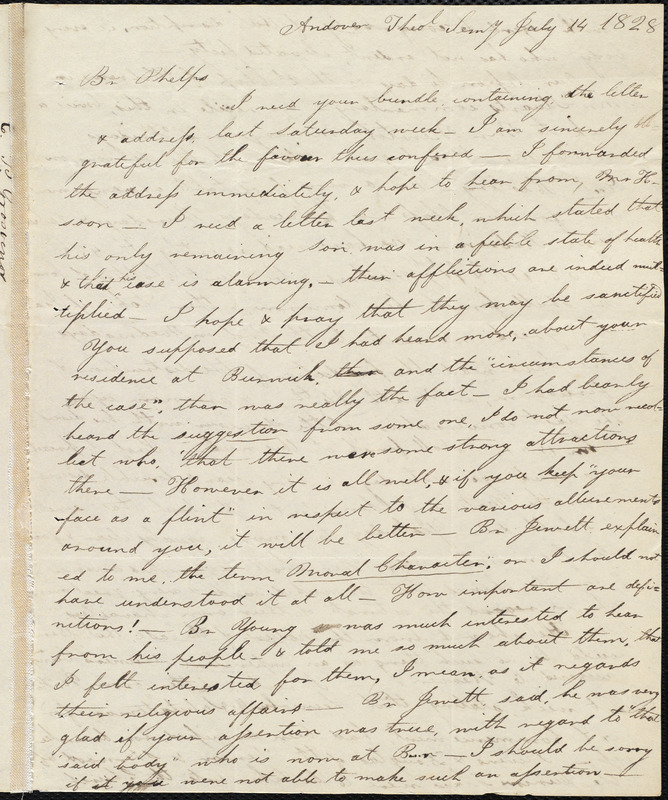 Andover Theol Semy July 14 1828
Br Phelps
I recd your bundle containing the letter
& address, last Saturday week - I am sincerely
grateful for the favour thus confered - I forwarded
the address immediately, & hope to hear from Mr K-
soon - I recd a letter last week, which stated that
his only remaining son was in a feeble state of health
& that his case is alarming, - their afflictions are indeed mul-
tiplied - I hope & pray that they may be sanctified
You supposed that I had heard more, about your
residence at Burwick, than and the "circumstances of
the case", than was really the fact - I had bearly
heard the suggestion from some one, I do not now recol-
lect who, "that there were some strong attractions
there - However it is all well, & if you keep "your
face as a flint" in respect to the various allurements
around you, it will be better - Br Jewett explain
ed to me, the term "Moral Character", or I should not
have understood it at all - How important are defi-
nitions! - Br Young was much interested to hear
from his people - & told me so much about them, that
I felt interested for them, I mean, as it regards
their religious affairs - Br Jewett said, he was very
glad if your assertion was true, with regard to "that
said body" who is now at Bur - I should be sorry
if you were not able to make such an assertion -